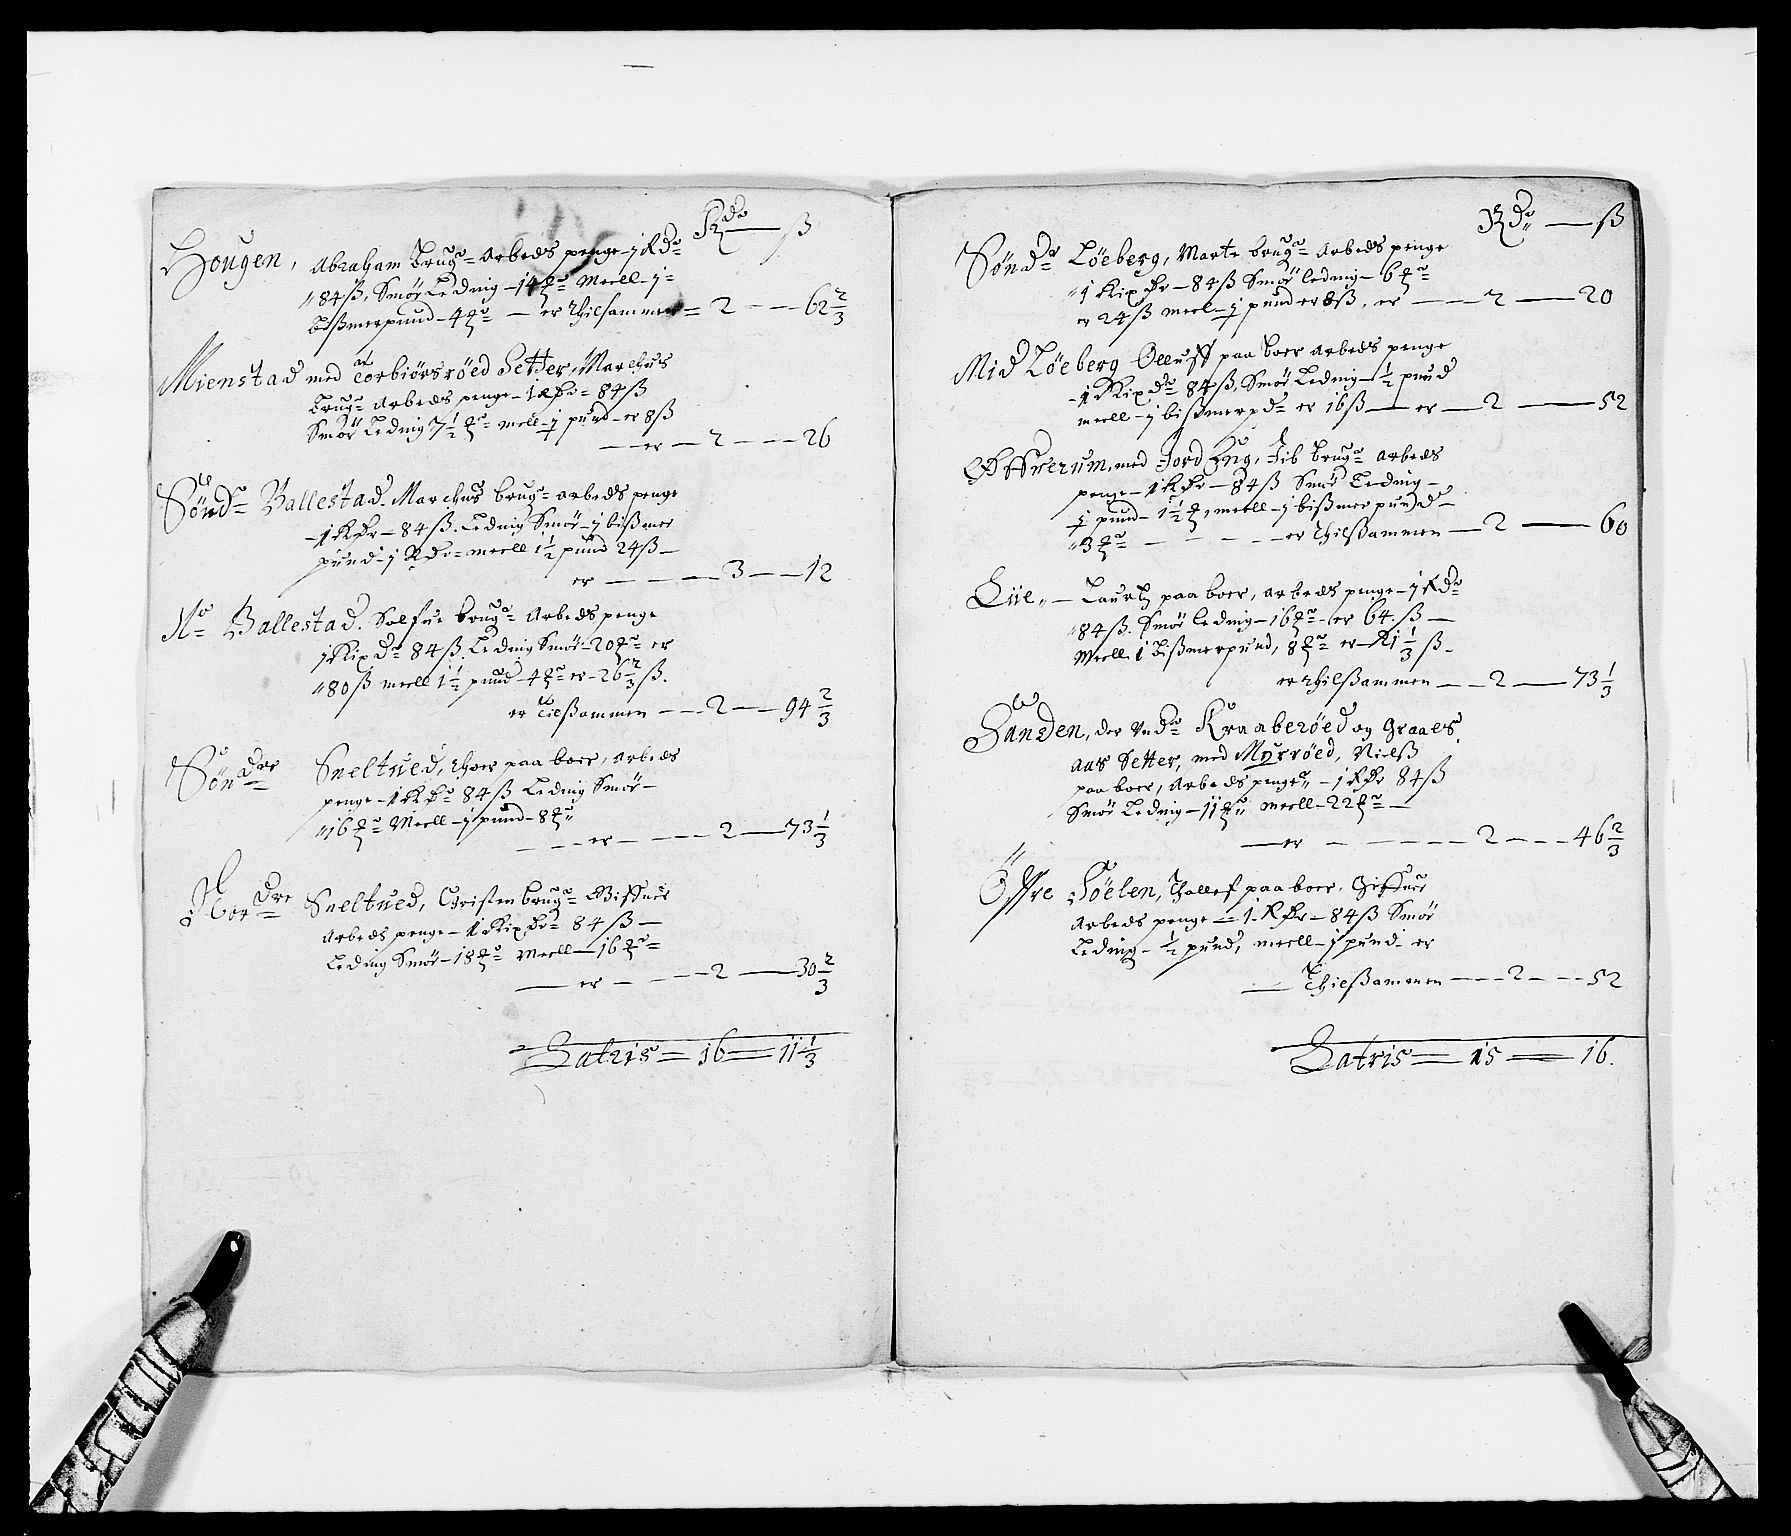 Rdr — ß
Hougen, Abraham brugr Arbeds penge j Rdr
84 ß, Smør Leding 14 mrk Meell j
bißmerpund 4 mrk — er Thilsammen 2 — 62 2/3
Mienstad med at Torbiørsrøed Setter, Marchus
brugr Arbeds penge 1 Rdr 84 ß
Smør Leding 7 1/2 mrk mell j pund er 8 ß
— er — 2 — 26
Søndr Ballestad. Marchus brugr arbeds penge
1 Rdr — 84 ß. Leding Smør j bißmer
pund j Rdr meell 1 1/2 pund 24 ß —
er — 3 — 12
No Ballestad. Solfue brugr Arbeds penge
j Rixdr 84 ß Leding Smør 20 mrk er
80 ß meell 1 1/2 pund 4 mrk er 26 2/3 ß.
er Tilßammen — 2 — 94 2/3
Søndre Sneltued, Thor paa boer, arbeds
penge 1 Rdr 84 ß Leding Smør —
16 mrk Meell j pund 8 mrk
— er — 2 — 73 1/3
Nordre Sneltued, Christen brugr Giffuer
Arbeds penge 1 Rixdr 84 ß —
Leding Smør 18 mrk Meell 16 mrk
— er — 2 — 30 2/3
Latris — 16 — 11 1/3
Rdr — ß
Søndr Løeberg, Marte brugr Arbeds penge
1 Rixdr — 84 ß Smør leding 6 mrk
er 24 ß meel j pund er 8 ß, er — 2 — 20
Mid Løeberg Olluff paa boer arbeds penge
1 Rixdr 84 ß, Smør Leding 1/2 pund
meell j bißmerpd er 16 ß — er — 2 — 52
Øffuerum, med Jord Eng, Jib brugr arbeds
penge 1 Rdr — 84 ß Smør Leding —
j pund 1 1/2 mrk, meell j bißmer pund —
3 mrk — er Thilßammen — 2 — 60
Lie — Lauritz paa boer, arbeds penge j Rdr
84 ß. Smør leding 16 mrk er 64 ß —
Meell 1 bißmerpund, 8 mrk er 21 1/3 ß
er Thilßammen — 2 — 73 1/3
Sanden, der Undr Kraaberøed og Graaes
aas Setter, med Myrrøed, Nielß
paa boer, Arbeds penge j Rdr 84 ß
Smør Leding 11 mrk meell 22 mrk —
— er — 2 — 46 2/3
Øffre Føelen, Tallef paa boer, Giffuer
Arbeds penge 1 Rdr — 84 ß Smør
Leding 1/2 pund, meell j pund er
Thilßammen — 2 — 52
Latris — 15 — 16.